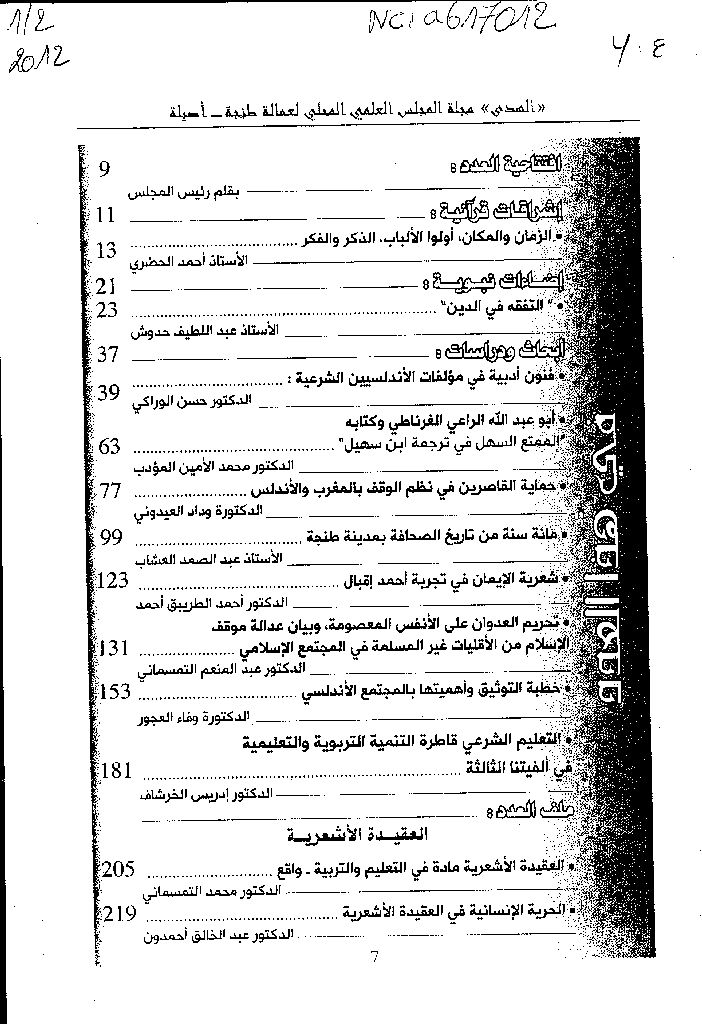 1/2
2012
Ncia617012
ع . 4
«الهدى» مجلة المجلس العلمي المحلي لعمالة طنجة - أصيلة
افتتاحية العدد : 9
بقلم رئيس المجلس
إشراقات قرآنية : 11
• الزمان والمكان، أولوا الألباب، الذكر والفكر 13
الأستاذ أحمد الحضري
إضاءات نبوية : 21
• "التفقه في الدين" 23
الأستاذ عبد اللطيف حدوش
أبحاث ودراسات : 37
• فنون أدبية في مؤلفات الأندلسيين الشرعية : 39
الدكتور حسن الوراكي
• أبو عبد الله الراعي الغرناطي وكتابه
"الممتع السهل في ترجمة ابن سهيل" 63
الدكتور محمد الأمين المؤدب
• حماية القاصرين في نظم الوقف بالمغرب والأندلس 77
الدكتورة وداد العيدوني
• مائة سنة من تاريخ الصحافة بمدينة طنجة 99
الأستاذ عبد الصمد العشاب
• شعرية الإيمان في تجربة أحمد إقبال 123
الدكتور أحمد الطريبق أحمد
• تحريم العدوان على الأنفس المعصومة، وبيان عدالة موقف
الإسلام من الأقليات غير المسلمة في المجتمع الإسلامي 131
الدكتور عبد المنعم التمسماني
• خطبة التوثيق وأهميتها بالمجتمع الأندلسي 153
الدكتورة وفاء العجور
• التعليم الشرعي قاطرة التنمية التربوية والتعليمية
في ألفيتنا الثالثة 181
الدكتور إدريس الخرشاف
ملف العدد :
العقيدة الأشعرية
• العقيدة الأشعرية مادة في التعليم والتربية - واقع 205
الدكتور محمد التمسماني
• الحرية الإنسانية في العقيدة الأشعرية 219
الدكتور عبد الخالق أحمدون
في هذا العدد
7